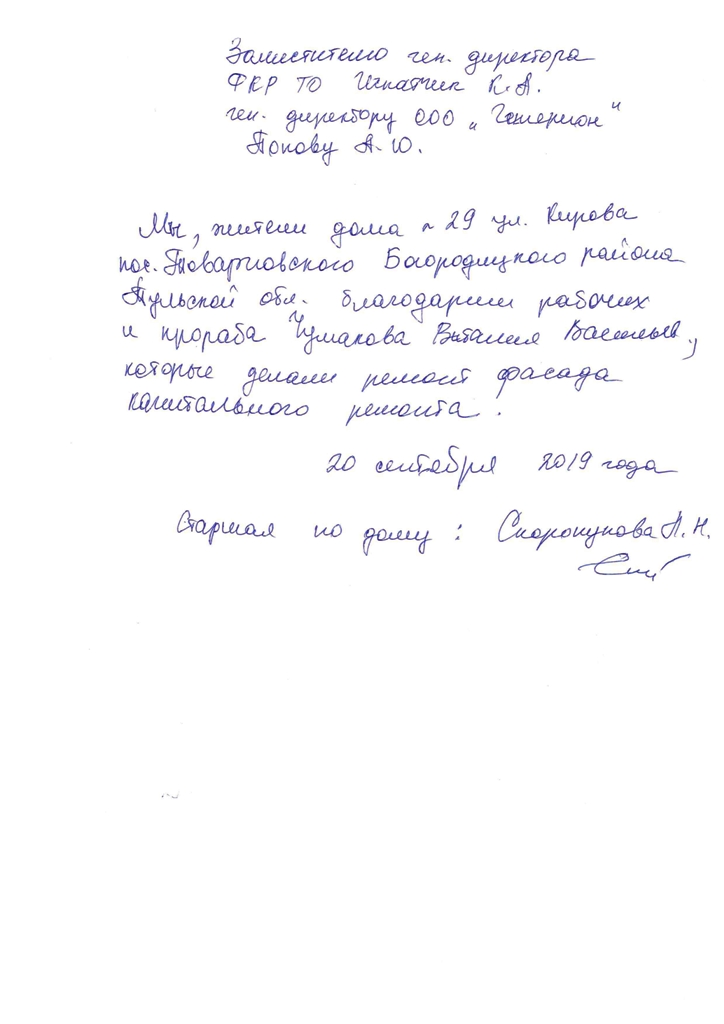 Заместителю ген. директора
ФКР ТО Игнатчик К.А.
ген. директору ООО „Гетерион"
Попову А.Ю.
Мы, жители дома № 29 ул. Кирова
пос. Товарковского Богородицкого района
Тульской обл. благодарим рабочих
и прораба Чумакова Виталия
которые делали ремонт фасада
капитального ремонта.
20 сентября 2019 года
Старшая по дому: Скорокупова Л.Н.